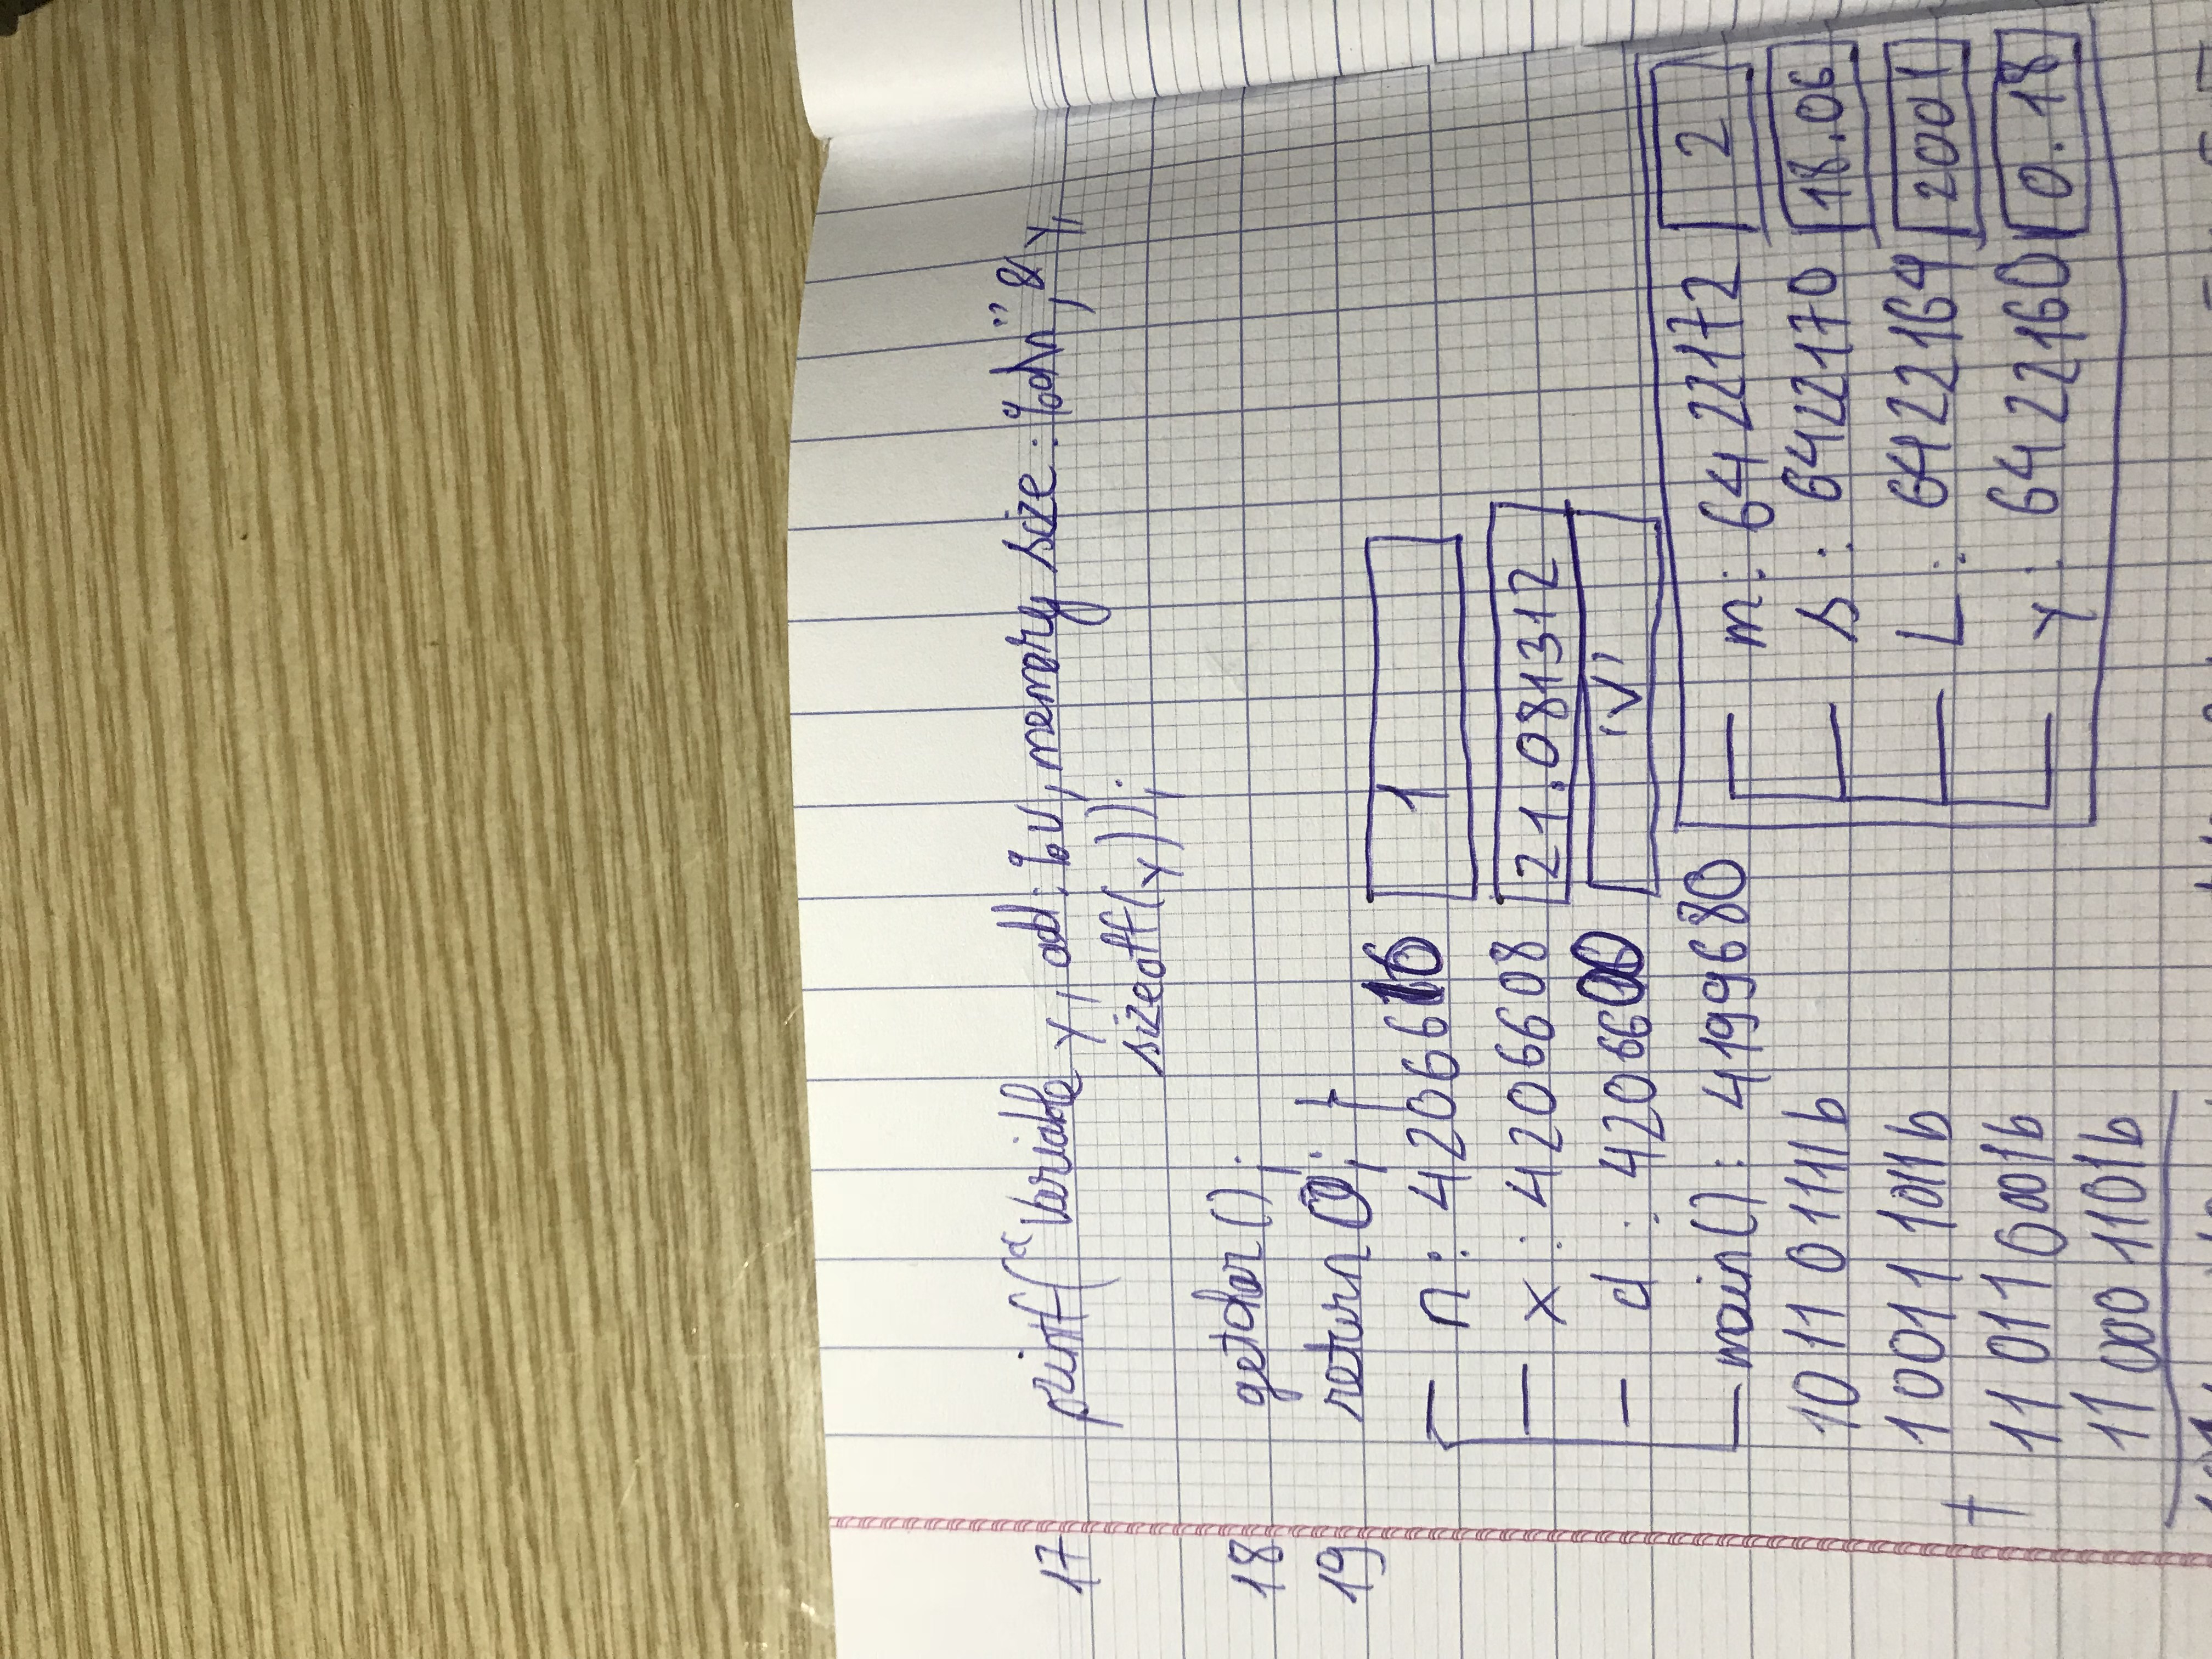 17 printf("Variable y, add: %u, memory size: %d\n", &y,
sizeoff(y));
18 getchar();
19 return 0; }
n: 4206616 1
x: 4206608 21.081312
d: 4206600 'V'
main(): 4199680
m: 6422172 2
s: 6422170 18.06
L: 6422164 2001
y: 6422160 0.18
1011 01111b
10011 1011b
+
11 011 0001b
11 000 1101b